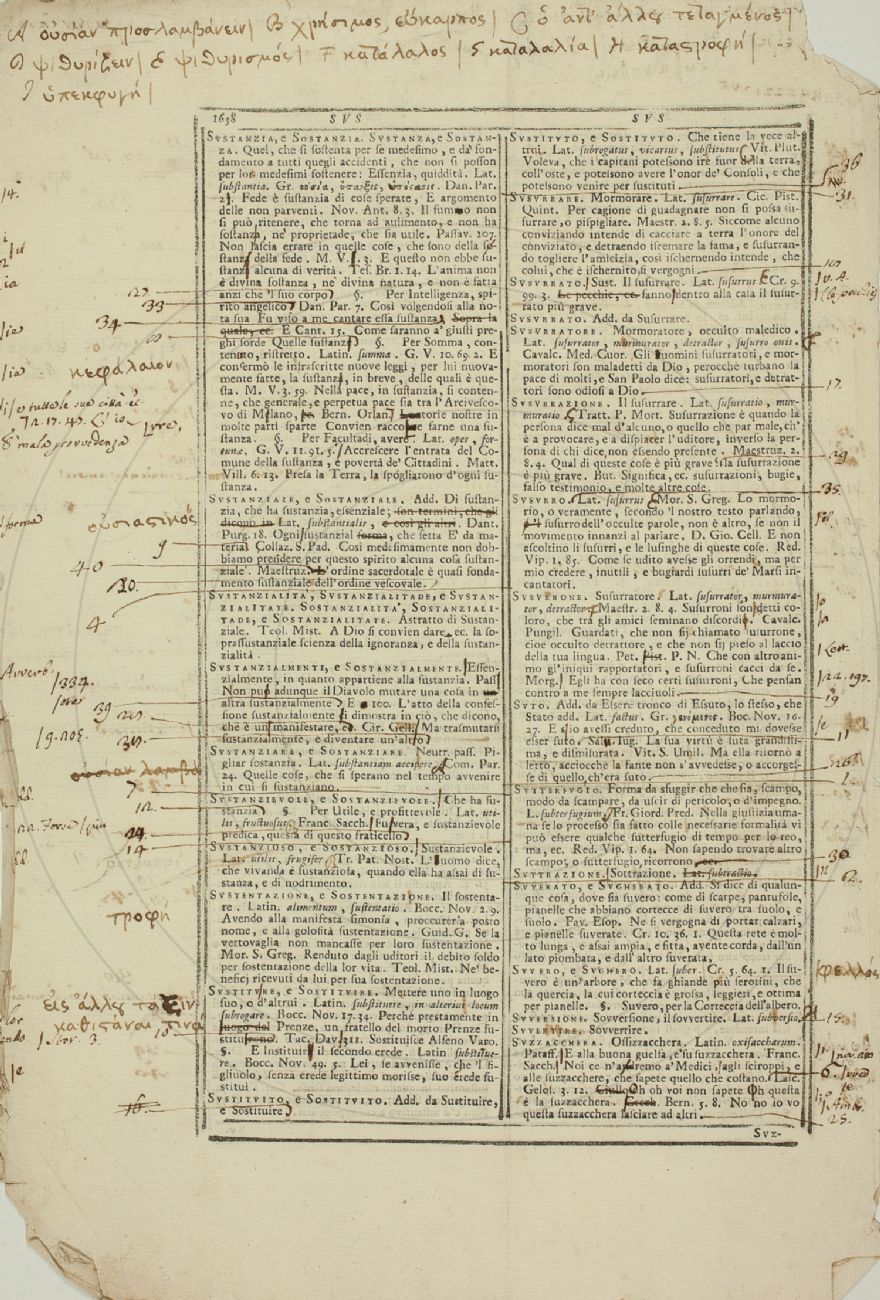 A οὐσίαν προσλαμβάνειν| B χρήσιμος, εὔκαρπος| C ὁ ἀντ' ἄλλου τεταγμένος|
D ψιθυρίζειν| E ψιθυρισμός| F κατάλαλος| G καταλαλία| H καταστροφή|
I ὑπεκφυγή|
1658 SVS SVS
SVSTANZIA, e SOSTANZIA. SVSTANZA, e SOSTAN-
ZA. Quel, che si sostenta per se medesimo, e dà fon-
damento a tutti quegli accidenti, che non si posson
per lor medesimi sostenere: Essenzia, quiddità. Lat.
substantia. Gr. οὐσία, ὕπαρξις, ὑπόστασις. Dan. Par.
24. Fede è sustanzia di cose sperate, E argomento
delle non parventi. Nov. Ant. 8. 3. Il summo non
si può ritenere, che torna ad aulimento, e non ha
sostanza, nè proprietade, che sia utile. Passav. 107.
Non lascia errare in quelle cose, che sono della so-
stanza della fede. M. V. 3. E questo non ebbe su-
stanza alcuna di verità. Tes. Br. 1. 14. L'anima non
è divina sostanza, nè divina natura, e non è fatta
anzi che 'l suo corpo §. Per Intelligenza, spi-
rito angelico Dan. Par. 7. Così volgendosi alla no-
ta sua Fu viso a me cantare essa sustanza, Sopra la
quale, ec. E Cant. 15. Come saranno a' giusti pre-
ghi sorde Quelle sustanze §. Per Somma, con-
tenuto, ristretto. Latin. summa. G. V. 10. 69. 2. E
confermò le infrascritte nuove leggi, per lui nuova-
mente fatte, la sustanza, in breve, delle quali è que-
sta. M. V. 3. 59. Nella pace, in sustanzia, si conten-
ne, che generale, e perpetua pace sia tra l'Arcivesco-
vo di Melano, Bern. Orlan. storie nostre in
molte parti sparte Convien raccorre farne una su-
stanza. §. Per Facultadi, avere. Lat. opes, for-
tunæ. G. V. 11. 91. 5. Accrescere l'entrata del Co-
mune della sustanza, e povertà de' Cittadini. Matt.
Vill. 6. 13. Presa la Terra, la spogliarono d'ogni su-
stanza.
SVSTANZIALE, e SOSTANZIALE. Add. Di sustan-
zia, che ha sustanzia, essenziale; son termini, che gli
dicono in Lat. substantialis, e così gli altri. Dant.
Purg. 18. Ogni sustanzial forma, che setta E' da ma-
teria Collaz. S. Pad. Così medesimamente non dob-
biamo presidere per questo spirito alcuna cosa sustan-
ziale. Maestruz. L'ordine sacerdotale è quasi fonda-
mento sustanziale dell'ordine vescovale.
SVSTANZIALITA', SVSTANZIALITADE, e SVSTAN-
ZIALITATE. SOSTANZIALITA', SOSTANZIALI-
TADE, e SOSTANZIALITATE. Astratto di Sustan-
ziale. Teol. Mist. A Dio si convien dare, ec. la so-
prassustanziale scienza della ignoranza, e della sustan-
zialità.
SVSTANZIALMENTE, e SOSTANZIALMENTE. Essen-
zialmente, in quanto appartiene alla sustanzia. Pass.
Non può adunque il Diavolo mutare una cosa in un'
altra sustanzialmente E 100. L'atto della confes-
sione sustanzialmente si dimostra in ciò, che dicono,
che è un manifestare, ec. Cir. Gell. Ma trasmutarsi
sustanzialmente, e diventare un'altro
SVSTANZIARE, e SOSTANZIARE. Neutr. pass. Pi-
gliar sostanzia. Lat. substantiam accipere. Com. Par.
24. Quelle cose, che si sperano nel tempo avvenire
in cui si sustanziano.
SVSTANZIEVOLE, e SOSTANZIEVOLE. Che ha su-
stanzia §. Per Utile, e profittevole. Lat. uti-
lis, fructuosus. Franc. Sacch. Fu vera, e sustanzievole
predica, questa di questo fraticello
SVSTANZIOSO, e SOSTANZIOSO. Sustanzievole.
Lat. utilis, frugifer. Tr. Pat. Nost. L'uomo dice,
che vivanda è sustanziosa, quando ella ha assai di su-
stanza, e di nodrimento.
SVSTENTAZIONE, e SOSTENTAZIONE. Il sostenta-
re. Latin. alimentum, sustentatio. Bocc. Nov. 2. 9.
Avendo alla manifesta simonia, procureria posto
nome, e alla golosità sustentazione. Guid. G. Se la
vettovaglia non mancasse per loro sustentazione.
Mor. S. Greg. Renduto dagli uditori il debito soldo
per sostentazione della lor vita. Teol. Mist. Ne' be-
neficj ricevuti da lui per sua sostentazione.
SVSTITVIRE, e SOSTITVIRE. Mettere uno in luogo
suo, o d'altrui. Latin. substituere, in alterius locum
subrogare. Bocc. Nov. 17. 34. Perchè prestamente in
luogo del Prenze, un fratello del morto Prenze su-
stituirono. Tac. Dav. 311. Sostituisce Alfeno Varo.
§. E Instituire il secondo erede. Latin. substitue-
re. Bocc. Nov. 49. 5. Lei, se avvenisse, che 'l fi-
gliuolo, senza erede legittimo morisse, suo erede su-
stituì.
SVSTITVITO, e SOSTITVITO. Add. da Sustituire,
e Sostituire
SVSTITVTO, e SOSTITVTO. Che tiene la vece al-
trui. Lat. subrogatus, vicarius, substitutus. Vit. Plut.
Voleva, che i capitani potessono ire fuor della terra,
coll'oste, e potessono avere l'onor de' Consoli, e che
potessono venire per sustituti.
SVSVRRARE. Mormorare. Lat. susurrare. Cic. Pist.
Quint. Per cagione di guadagnare non si possa su-
surrare, o pispigliare. Maestr. 2. 8. 5. Siccome alcuno
conviziando intende di cacciare a terra l'onore del
conviziato, e detraendo iscemare la fama, e susurran-
do togliere l'amicizia, così ischernendo intende, che
colui, che è ischernito, si vergogni
SVSVRRATO. Sust. Il susurrare. Lat. susurrus. Cr. 9.
99. 3. Le pecchie, ec. fanno dentro alla casa il susur-
rato più grave.
SVSVRRATO. Add. da Susurrare.
SVSVRRATORE. Mormoratore, occulto maledico.
Lat. susurrator, murmurator, detractor, susurro onis.
Cavalc. Med. Cuor. Gli uomini susurratori, e mor-
moratori son maladetti da Dio, perocchè turbano la
pace di molti, e San Paolo dice: susurratori, e detrat-
tori sono odiosi a Dio
SVSVRRAZIONE. Il susurrare. Lat. susurratio, mur-
muratio. Tratt. P. Mort. Susurrazione è quando la
persona dice mal d'alcuno, o quello che par male, ch'
è a provocare, e a displacer l'uditore, inverso la per-
sona di chi dice, non essendo presente. Maestruz. 2.
8. 4. Qual di queste cose è più grave sia la susurrazione
è più grave. But. Significa, ec. susurrazioni, bugie,
falso testimonio, e molte altre cose.
SVSVRRO. Lat. susurrus. Mor. S. Greg. Lo mormo-
rio, o veramente, secondo 'l nostro testo parlando,
susurro dell'occulte parole, non è altro, se non il
movimento innanzi al parlare. D. Gio. Cell. E non
ascoltino li susurri, e le lusinghe di queste cose. Red.
Vip. 1. 85. Come se udito avesse gli orrendi, ma per
mio credere, inutili, e bugiardi susurri de' Marsi in-
cantatori.
SVSVRRONE. Susurratore. Lat. susurrator, murmura-
tor, detractor. Maestr. 2. 8. 4. Susurroni son detti co-
loro, che trà gli amici seminano discordie. Cavalc.
Pungil. Guardati, che non sij chiamato susurrone,
cioè occulto detrattore, e che non sij preso al laccio
della tua lingua. Pet. Fist. P. N. Che con altro ani-
mo gl'iniqui rapportatori, e susurroni cacci da se.
Morg. Egli ha con seco certi susurroni, Che pensan
contro a me sempre lacciuoli.
SVTO. Add. da Essere tronco di Essuto, lo stesso, che
Stato add. Lat. factus. Gr. γενόμενος. Boc. Nov. 16.
27. E s'io avessi creduto, che conceduto mi dovesse
esser suto. Salu. Iug. La sua virtù è suta grandissi-
ma, e dismisurata. Vit. S. Umil. Ma ella ritorno a
letto, acciocchè la fante non s'avvedesse, o accorges-
se di quello, ch'era suto.
SVTTERFVGIO. Forma da sfuggir che che sia, scampo,
modo da scampare, da uscir di pericolo, o d'impegno.
L. subterfugium. Fr. Giord. Pred. Nella giustizia uma-
na se lo processo sia fatto colle necessarie formalità vi
può essere qualche sutterfugio di tempo per lo reo,
ma, ec. Red. Vip. 1. 64. Non sapendo trovare altro
scampo, o sutterfugio, ricorrono, ec.
SVTTRAZIONE. Sottrazione. Lat. subtractio.
SVVERATO, e SVGHERATO. Add. Si dice di qualun-
que cosa, dove sia suvero: come di scarpe, pantufole,
pianelle che abbiano cortecce di suvero tra suolo, e
suolo. Fav. Esop. Nè si vergogna di portar calzari,
e pianelle suverate. Cr. 10. 36. 1. Questa rete è mol-
to lunga, e assai ampia, e fitta, avente corda, dall'un
lato piombata, e dall'altro suverata,
SVVERO, e SVGHERO. Lat. suber. Cr. 5. 64. 1. Il su-
vero è un'arbore, che fa ghiande più serotini, che
la quercia, la cui corteccia è grossa, leggieri, e ottima
per pianelle. §. Suvero, per la Corteccia dell'albero.
SVVERSIONE. Sovversione, il sovvertire. Lat. subversio.
SVVERTIRE. Sovvertire.
SVZZACCHERA. Ossizzacchera. Latin. oxisaccharum.
Pataff. E alla buona guella, e'su suzzacchera. Franc.
Sacch. Noi ce n'andremo a' Medici, sagli sciroppi, e
alle suzzacchere, che sapete quello che costano. Lasc.
Gelos. 3. 12. Oh oh voi non sapete Oh questa
è la suzzacchera. Bern. 5. 8. No no io vo
questa suzzacchera lasciare ad altri.
SVZ-
27
33
34
κεφάλαιον
οὐσιαστικός
9
40
20.
4
Avverb.
/334.
39
7
12.
14
τροφή
εἰς ἄλλου τάξιν
καθιστάναι τινά
16.
36
31.
17.
29
35.
19
11
30
2.
φελλός
15.
6.
25.